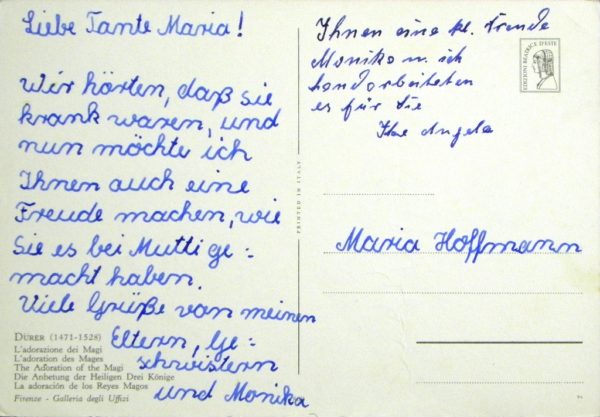 Liebe Tante Maria!
Wir hörten, daß sie
krank waren, und
nun möchte ich
Ihnen auch eine
Freude machen, wie
Sie es bei Mutti ge=
macht haben.
Viele Grüße von meinen
Eltern, Ge=
schwistern
und Monika
DÜRER (1471-1528)
L'adorazione dei Magi
L'adoration des Mages
The Adoration of the Magi
Die Anbetung der Heiligen Drei Könige
La adoración de los Reyes Magos
Firenze - Galleria degli Uffizi
PRINTED IN ITALY
Ihnen eine kl. Freude
Monika u. ich
handarbeiteten
es für Sie
Ihre Angela
EDIZIONI BEATRICE D'ESTE
Maria Hoffmann